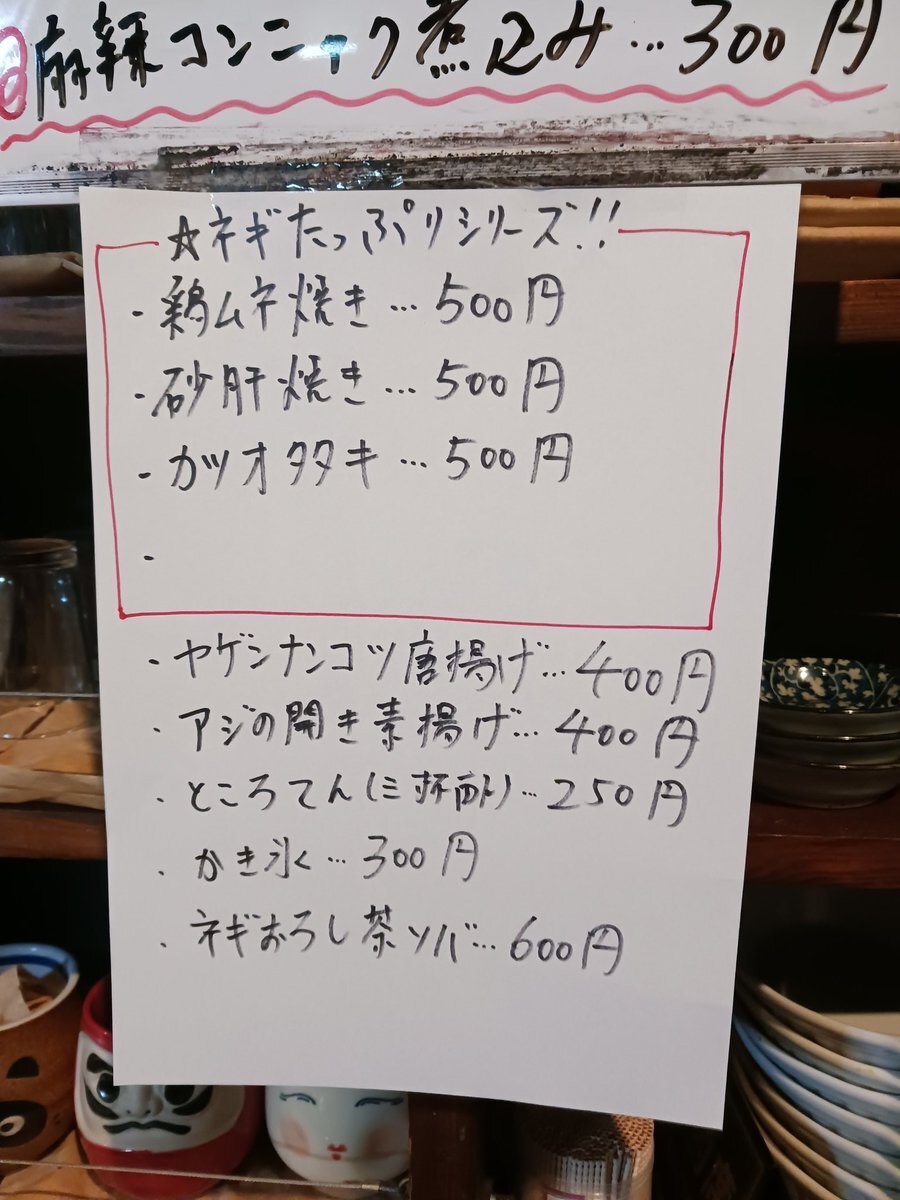 麻辣コンニャク煮込み…300円
☆ネギたっぷりシリーズ!!
・鶏ムネ焼き…500円
・砂肝焼き…500円
・カツオタタキ…500円
・
・ヤゲンナンコツ唐揚げ…400円
・アジの開き素揚げ…400円
・ところてん(三杯酢)…250円
・かき氷…300円
・ネギおろし茶ソバ…600円